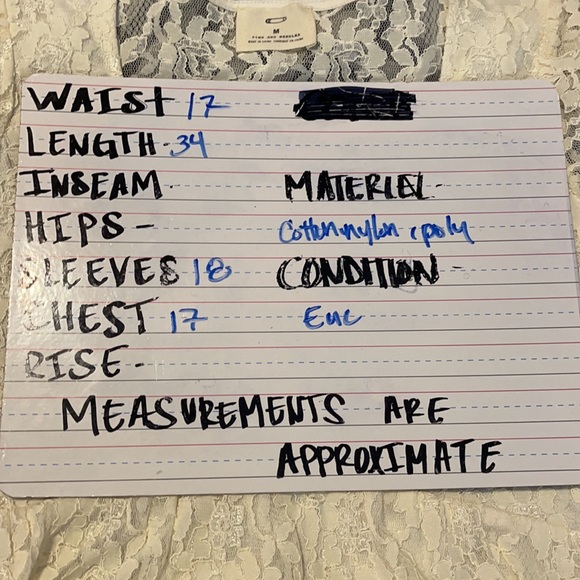 M
PINS AND NEEDLES
WAIST 17
LENGTH-34
INSEAM-
HIPS-
SLEEVES 18
CHEST 17
RISE-
MATERIAL-
Cotton nylon, poly
CONDITION-
Euc
MEASUREMENTS ARE
APPROXIMATE